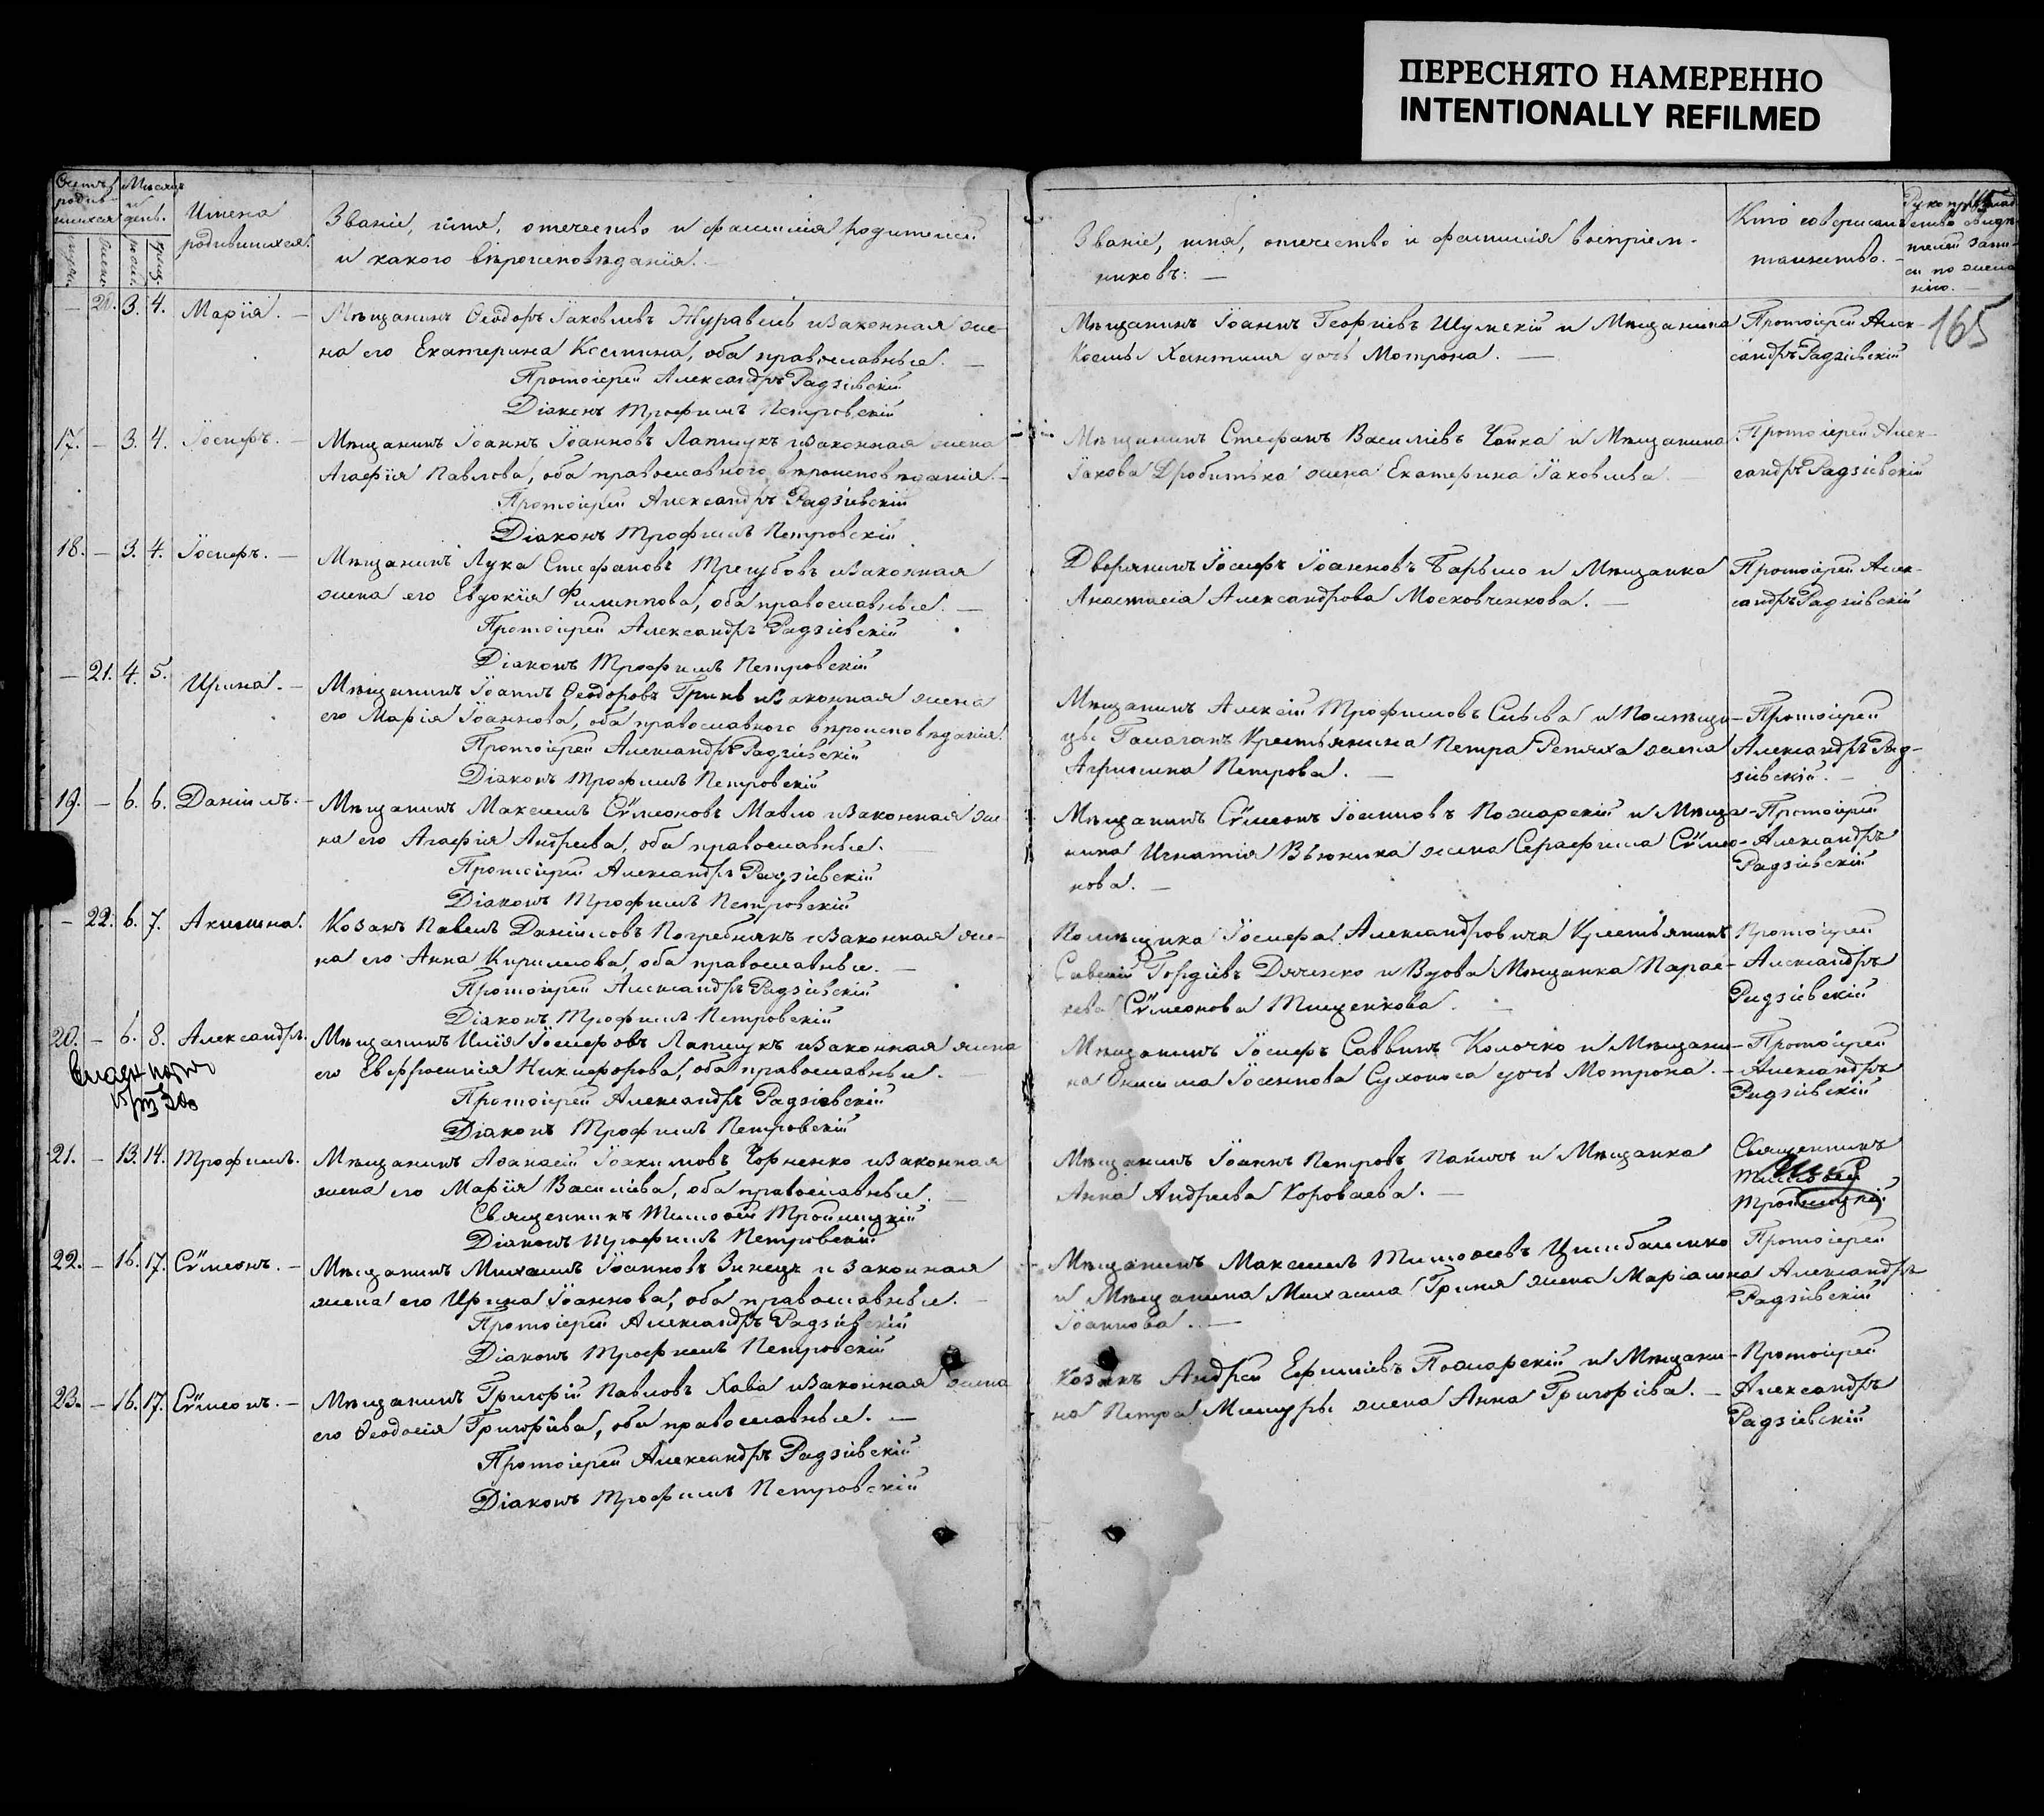 ПЕРЕСНЯТО НАМЕРЕННО
INTENTIONALLY REFILMED
165
Счетъ родив-шихся
Мѣсяцъ и день.
Имена
родившихся.
Званіе, имя, отечество и фамилія родителей
и какого вѣроисповѣданія.
Званіе, имя, отечество и фамилія воспріем-
никовъ: —
Кто совершалъ
таинство. —
— 20. 3. 4. Марія. —
Мѣщанинъ Ѳеодоръ Іаковлевъ Журавель и законная же-
на его Екатерина Космина, оба православные. —
Протоіерей Александръ Радзіевскій
Діаконъ Трофимъ Петровскій
Мѣщанинъ Іоаннъ Георгіевъ Шумскій и Мѣщанина
Космы дочь Мотрона. —
Протоіерей Алек-
сандръ Радзіевскій
165
17. — 3. 4. Іосифъ. —
Мѣщанинъ Іоаннъ Іоанновъ Лапшукъ и законная жена
Агафія Павлова, оба православного вѣроисповѣданія. —
Протоіерей Александръ Радзіевскій
Діаконъ Трофимъ Петровскій
Мѣщанинъ Стефанъ Василіевъ Чайка и Мѣщанина
Іакова Дробитька жена Екатерина Іаковлева. —
Протоіерей Алек-
сандръ Радзіевскій
18. — 3. 4. Іосифъ. —
Мѣщанинъ Лука Стефановъ Трегубовъ и законная
жена его Евдокія Филиппова, оба православные. —
Протоіерей Александръ Радзіевскій
Діаконъ Трофимъ Петровскій
Дворянинъ Іосифъ Іоанновъ и Мѣщанка
Анастасія Александрова Московченкова. —
Протоіерей Алек-
сандръ Радзіевскій
— 21. 4. 5. Ирина. —
Мѣщанинъ Іоаннъ Ѳеодоровъ Гринь и законная жена
его Марія Іоаннова, оба православного вѣроисповѣданія.
Протоіерей Александръ Радзіевскій
Діаконъ Трофимъ Петровскій
Мѣщанинъ Алексій Трофимовъ и Помѣщи-
цы Галаганъ Крестьянина Петра Репяха жена
Агрипина Петрова. —
Протоіерей
Александръ Рад-
зіевскій. —
19. — 6. 6. Даніилъ. —
Мѣщанинъ Максимъ Сѵмеоновъ Мавло и законная же-
на его Агафія Андреева, оба православные. —
Протоіерей Александръ Радзіевскій
Діаконъ Трофимъ Петровскій
Мѣщанинъ Сѵмеонъ Іоанновъ Пожарскій и Мѣща-
нина Игнатія Вьюника жена Серафима Сѵмео-
нова. —
Протоіерей
Александръ
Радзіевскій
— 22. 6. 7. Акилина.
Козакъ Павелъ Даніиловъ Погребнякъ и законная же-
на его Анна Кириллова, оба православные. —
Протоіерей Александръ Радзіевскій
Діаконъ Трофимъ Петровскій
Помѣщика Іосифа Александровича Крестьянинъ
Савелій Гордіевъ Дяченко и Вдова Мѣщанка Парас-
кева Сѵмеонова Тищенкова. —
Протоіерей
Александръ
Радзіевскій
20. — 6. 8. Александръ.
Мѣщанинъ Илія Іосифовъ Лапшукъ и законная жена
его Евфросинія Никифорова, оба православные. —
Протоіерей Александръ Радзіевскій
Діаконъ Трофимъ Петровскій
Мѣщанинъ Іосифъ Саввинъ Колочко и Мѣщани-
на Онисима Сухоноса дочь Мотрона. —
Протоіерей
Александръ
Радзіевскій
21. — 13. 14. Трофимъ.
Мѣщанинъ Аѳанасій Іоакимовъ Чорненко и законная
жена его Марія Василіева, оба православные. —
Священникъ Тимоѳей Троплицкій
Діаконъ Трофимъ Петровскій
Мѣщанинъ Іоаннъ Петровъ и Мѣщанка
Анна Андреева Короваева. —
Священникъ
Тимоѳей
22. — 16. 17. Сѵмеонъ. —
Мѣщанинъ Михаилъ Іоанновъ Зинецъ и законная
жена его Ирина Іоаннова, оба православные. —
Протоіерей Александръ Радзіевскій
Діаконъ Трофимъ Петровскій
Мѣщанинъ Максимъ Тимоѳеевъ Цимбаленко
и Мѣщанина Михаила Гриня жена Маріамна
Іоаннова. —
Протоіерей
Александръ
Радзіевскій
23. — 16. 17. Сѵмеонъ. —
Мѣщанинъ Григорій Павловъ Хава и законная жена
его Ѳеодосія Григоріева, оба православные. —
Протоіерей Александръ Радзіевскій
Діаконъ Трофимъ Петровскій
Козакъ Андрей Ефиміевъ Пожарскій и Мѣщани-
на Петра жена Анна Григоріева. —
Протоіерей
Александръ
Радзіевскій